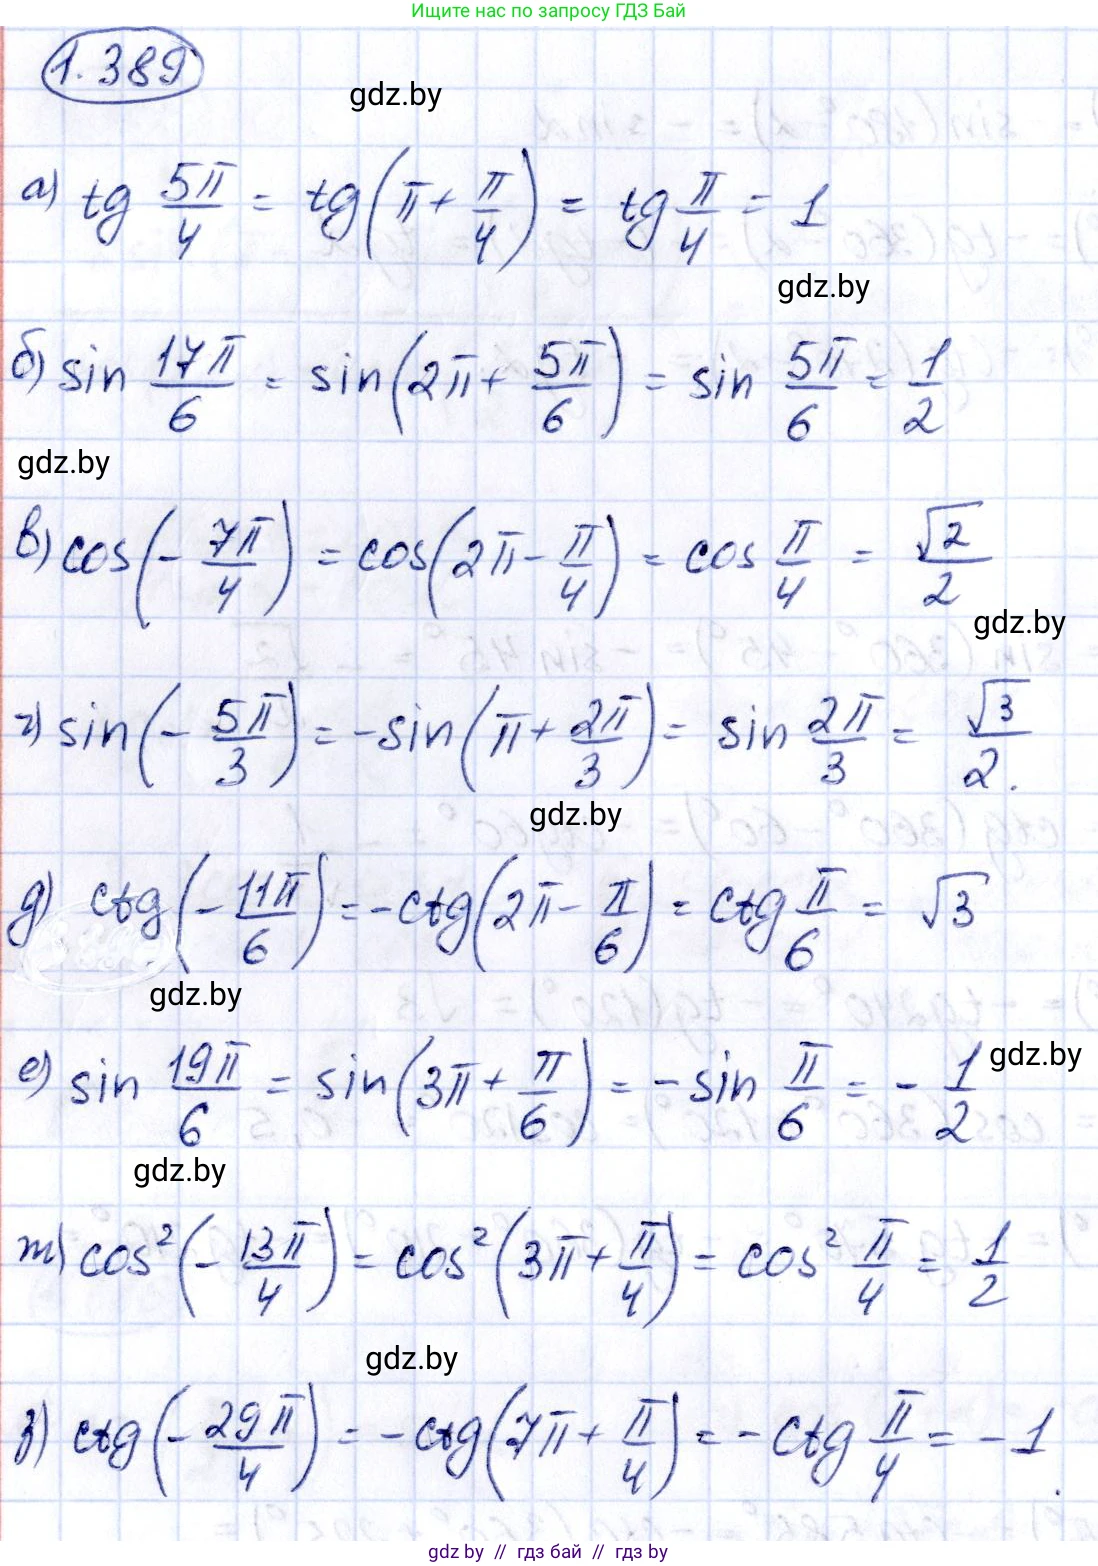 Ищите нас по запросу ГДЗ Бай
1.389
gdz.by
а) tg 5π/4 = tg(π + π/4) = tg π/4 = 1
gdz.by
б) sin 17π/6 = sin(2π + 5π/6) = sin 5π/6 = 1/2
gdz.by
в) cos(- 7π/4) = cos(2π - π/4) = cos π/4 = √2/2
gdz.by
г) sin(- 5π/3) = -sin(π + 2π/3) = sin 2π/3 = √3/2.
gdz.by
д) ctg(- 11π/6) = -ctg(2π - π/6) = ctg π/6 = √3
gdz.by
е) sin 19π/6 = sin(3π + π/6) = -sin π/6 = - 1/2
gdz.by
gdz.by
ж) cos²(- 13π/4) = cos²(3π + π/4) = cos² π/4 = 1/2
gdz.by
з) ctg(- 29π/4) = -ctg(7π + π/4) = -ctg π/4 = -1.
gdz.by // гдз бай // гдз by